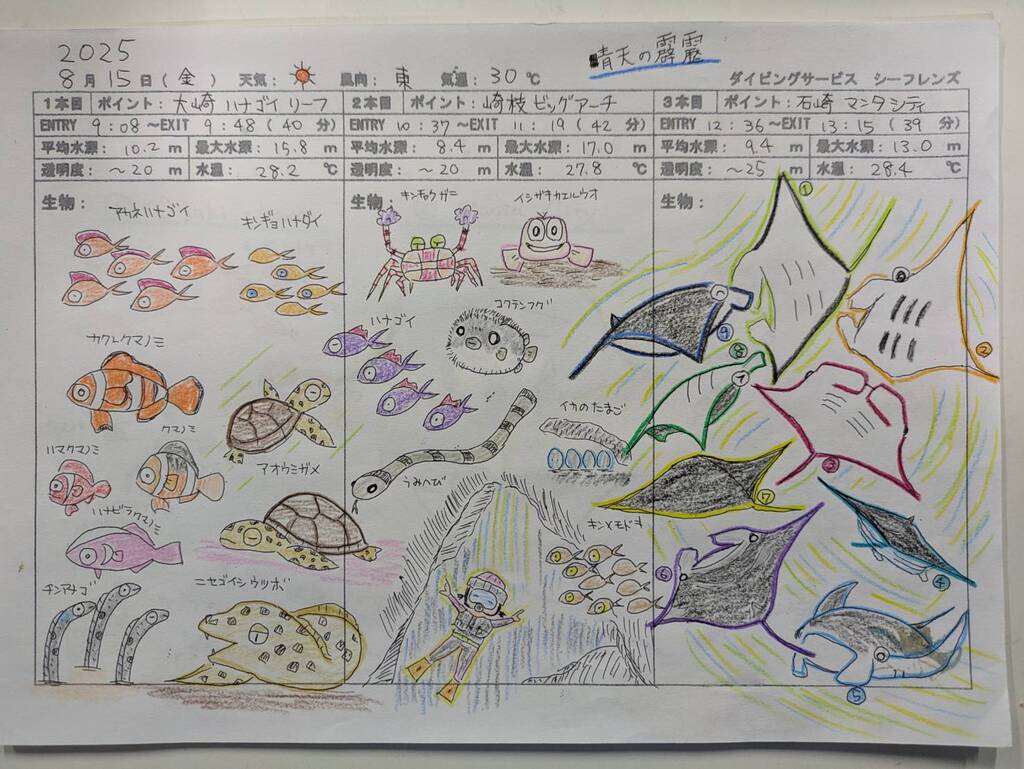 2025
晴天の霹靂
8月15日(金) 天気: 風向: 東 気温: 30℃ ダイビングサービス シーフレンズ
1本目 ポイント: 大崎 ハナゴイ リーフ
ENTRY 9:08 ~EXIT 9:48 (40 分)
平均水深: 10.2 m 最大水深: 15.8 m
透明度: ~20 m 水温: 28.2 ℃
生物:
アカネハナゴイ
キンギョハナダイ
カクレクマノミ
クマノミ
ハマクマノミ
アオウミガメ
ハナビラクマノミ
チンアナゴ
ニセゴイシウツボ
2本目 ポイント: 崎枝 ビッグアーチ
ENTRY 10:37 ~EXIT 11:19 (42 分)
平均水深: 8.4 m 最大水深: 17.0 m
透明度: ~20 m 水温: 27.8 ℃
生物:
キンチャクガニ
イシガキカエルウオ
コクテンフグ
ハナゴイ
イカのたまご
うみへび
キンメモドキ
3本目 ポイント: 石崎 マンタシティ
ENTRY 12:36 ~EXIT 13:15 (39 分)
平均水深: 9.4 m 最大水深: 13.0 m
透明度: ~25 m 水温: 28.4 ℃
生物:
①
②
③
④
⑤
⑥
⑦
⑧
⑨